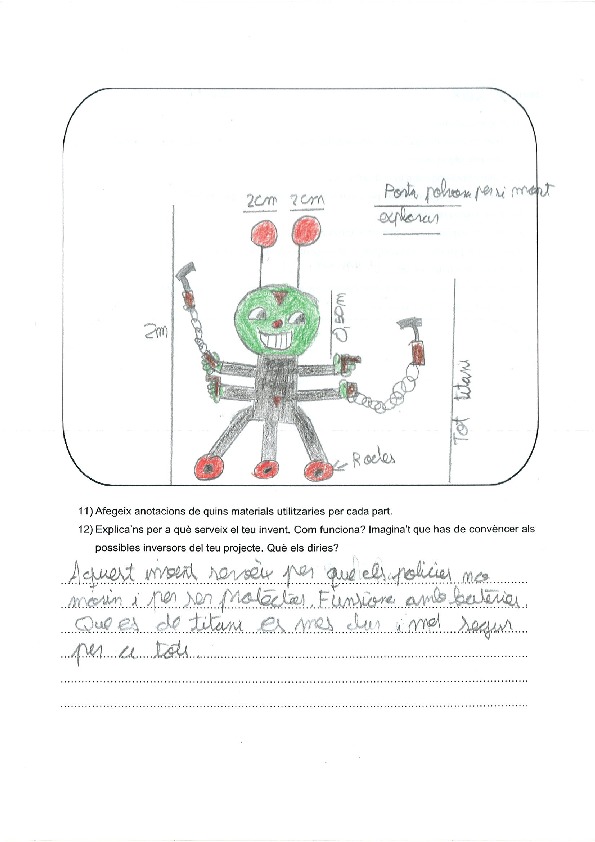 2cm 2cm
Porta polvora per si mort
explorar
2m
0,50m
Tot titani
Rodes
11) Afegeix anotacions de quins materials utilitzaries per cada part.
12) Explica'ns per a què serveix el teu invent. Com funciona? Imagina't que has de convèncer als
possibles inversors del teu projecte. Què els diries?
Aquest invent serveix per que els policies no
morin i per ser protectas. Funsiona amb bateries.
Que es de titani es mes dur i mes segur
per a tots.